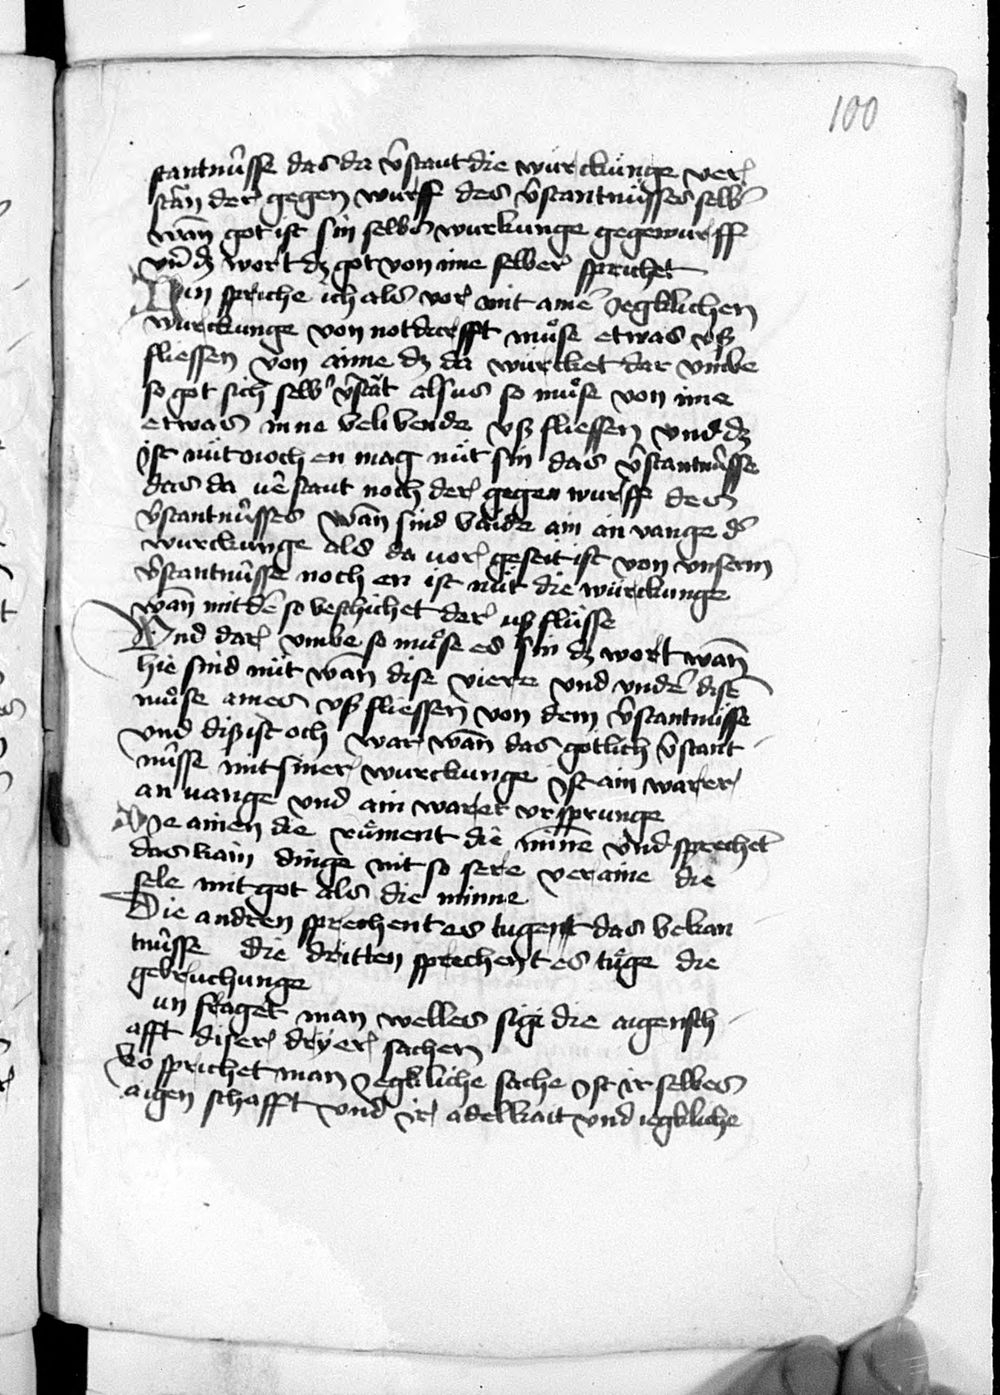 100
stantnüsse das da v̄stant die würckunge ver
stān der gegen wurff des v̄stantnüsses selb̄
wan̄ got ist sin selbs wurkunge gegewurff
vn̄ dz wort dz got von ime selber sprichet
Nun spriche ich als vor mit aine᷑ Jegklichen
wurckunge von notdurfft mu᷑se etwas vß
fliessen von aime dz da würcket dar vmbe
so got sich selb̄ v̄stāt alsus so muͦse von ime
etwas inne belibende vß fliessen vnd dz
ist nüt noch en mag nüt sin das v̄stantnüsse
das da ūstant noch der gegen wurff des
v̄stantnüsses wan̄ sind baide ain an vange d̄
wurckunge als da uor geseit ist von vnserm
v̄stantnüsse noch en ist nüt die würckunge
wan̄ mit dē so beschichet der vß flüsse
Vnd dar vmbe so muͦse es sin dz wort wan̄
hie sind nüt wan̄ dise viere vnd vndē disē
muͦse aines vß fliessen von dem v̄stantnüsse
vnd diß ist och war wan̄ das götlich v̄stant
nüsse mit siner wurckunge ist ain warer
an uange vnd ain warer vrsprunge
Die ainen die ruͤment die min̄e vnd sprechet
das kain dinge mit so sere veraine die
sele mit got als die minne
Die andren sprechent es tugent das bekan
tnüsse die dritten sprechent es tuͤge die
gebruchunge
un fraget man welles sigi die aigensch
afft diser dryer sachen
So sprichet man Jegkliche sache ist ir selbes
aigen schafft vnd ir adelkait vnd iegkliche